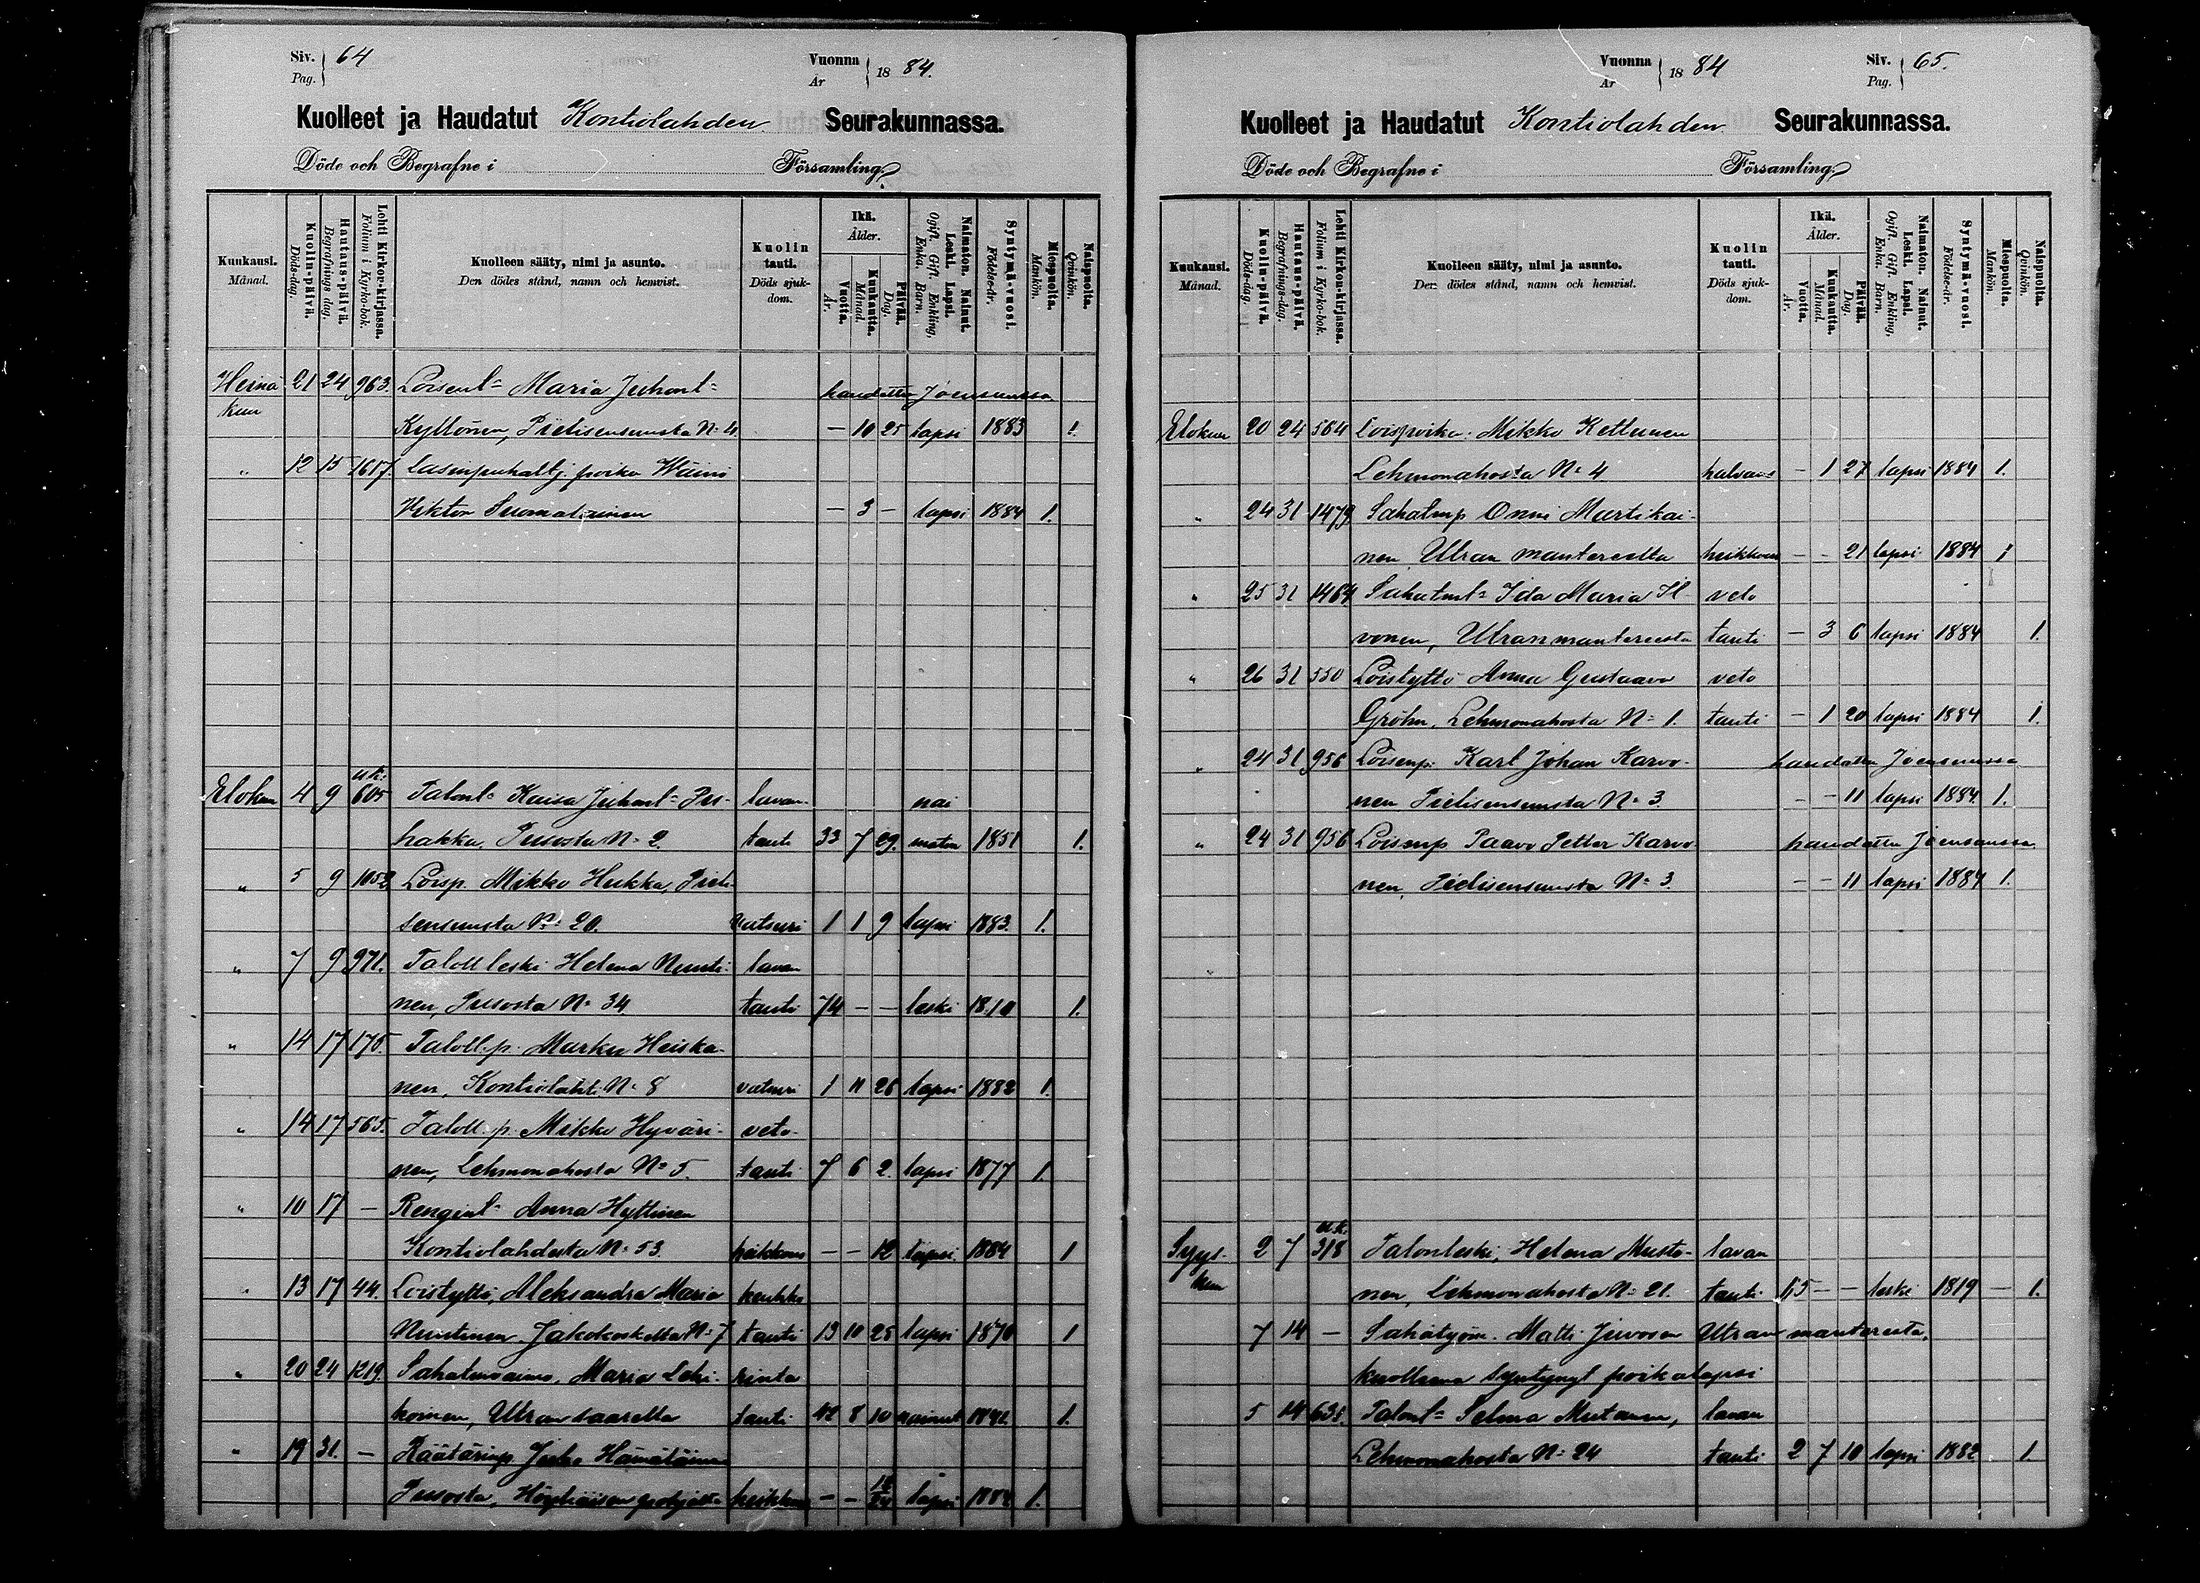 Siv. 64
Pag.
Vuonna 1884.
År
Kuolleet ja Haudatut Kontiolahden Seurakunnassa.
Döde och Begrafne i Församling.
Kuukausi. Månad.
Kuolin-päivä. Döds-dag.
Hautaus-päivä. Begrafnings dag.
Lehti Kirkon-kirjassa. Folium i Kyrko-bok.
Kuolleen sääty, nimi ja asunto. Den dödes stånd, namn och hemvist.
Kuolin tauti. Döds sjuk-dom.
Ikä. Ålder.
Vuotta. År.
Kuukautta. Månad.
Päivää. Dag.
Naimaton. Nainut. Leski. Lapsi. Ogift. Gift. Enkling, Enka. Barn.
Syntymä-vuosi. Födelse-år.
Miespuolta. Mankön.
Naispuolta. Qvinkön.
Heinä 21 24 963. Loisent= Maria Juhont= haudattu Joensuussa
kuu Kyttönen, Pielisensuusta N= 4. – 10 25 lapsi 1883 1.
„ 12 15 1617. Lasinpuhaltj. poika Wäinö
Viktor Suomalainen – 3 – lapsi 1884 1.
Elokuu 4 9 605 Talont= Kaisa Juhont= Pu- lavan- nai
hakka, Pusosta N= 2. tauti 33 7 29. maton 1851 1.
„ 5 9 1052 Loisp. Mikko Hukka, Pieli-
sensuusta N= 20. vatsuri 1 1 9 lapsi 1883. 1.
„ 7 9 971. Taloll leski Helena Nuuti- lavan
nen, Pusosta N= 34 tauti 74 – – leski 1810 1.
„ 14 17 175. Taloll. p. Marku Heiska-
nen, Kontiolahti N= 8 vatsuri 1 11 26 lapsi 1882 1.
„ 14 17 565. Taloll. p. Mikko Hyväri- veto-
nen, Lehmonahosta N= 5. tauti 7 6 2. lapsi 1877 1.
„ 10 17 – Rengint= Anna Hyttinen
Kontiolahdesta N= 53. heikkous – – 12 lapsi. 1884 1
„ 13 17 44. Loistyttö, Aleksandra Maria keuhko
Nuutinen, Jakokoskelta N= 7 tauti 13 10 25 lapsi 1870 1
„ 20 24 1219. Sahatmvaimo, Maria Lehi- rinta
koinen, Utran saarella tauti 42 8 10 nainut 1841. 1.
„ 19 31. – Räätärinp. Juho Hämäläinen
Pusosta, Höytiäisen pohjalta heikkous – – 12/24 lapsi 1884 1.
Vuonna 1884
År
Siv. 65.
Pag.
Kuolleet ja Haudatut Kontiolahden Seurakunnassa.
Döde och Begrafne i Församling.
Kuukausi. Månad.
Kuolin-päivä. Döds-dag.
Hautaus-päivä. Begrafnings-dag.
Lehti Kirkon-kirjassa. Folium i Kyrko-bok.
Kuolleen sääty, nimi ja asunto. Den dödes stånd, namn och hemvist.
Kuolin tauti. Döds sjuk-dom.
Ikä. Ålder.
Vuotta. År.
Kuukautta. Månad.
Päivää. Dag.
Naimaton. Nainut. Leski. Lapsi. Ogift. Gift. Enkling, Enka. Barn.
Syntymä-vuosi. Födelse-år.
Miespuolta. Mankön.
Naispuolta. Qvinkön.
Elokuu 20 24 564 Loispoika. Mikko Kettunen
Lehmonahosta N= 4 halvaus – 1 27 lapsi 1884 1.
„ 24 31 1479 Sahatmp Onni Martikai-
nen, Utran mantereelta heikkous – – 21 lapsi 1884 1
„ 25 31 1464 Sahatmt= Ida Maria Il veto
vonen, Utran mantereesta tauti – 3 6 lapsi 1884 1.
„ 26 31 550 Loistyttö Anna Gustaava veto
Gröhn, Lehmonahosta N= 1. tauti – 1 20 lapsi 1884 1.
„ 24 31 956 Loisenp. Karl Johan Karvo- haudattu Joensuussa
nen Pielisensuusta N= 3. – – 11 lapsi 1884. 1.
„ 24 31 956 Loisenp Paavo Petter Karvo- haudattu Joensuussa
nen, Pielisensuusta N= 3. – – 11 lapsi 1884 1.
Syys- 2 7 318 Talonleski, Helena Musto- lavan
kuu nen, Lehmonahosta N= 21. tauti 65 – – leski 1819 – 1.
7 14 – Sahatyöm. Matti Juvosen Utran mantereesta,
kuolleena syntynyt poikalapsi
5 14 635. Talont= Selma Mutanen, lavan
Lehmonahosta N= 24 tauti 2 7 10 lapsi 1882 1.